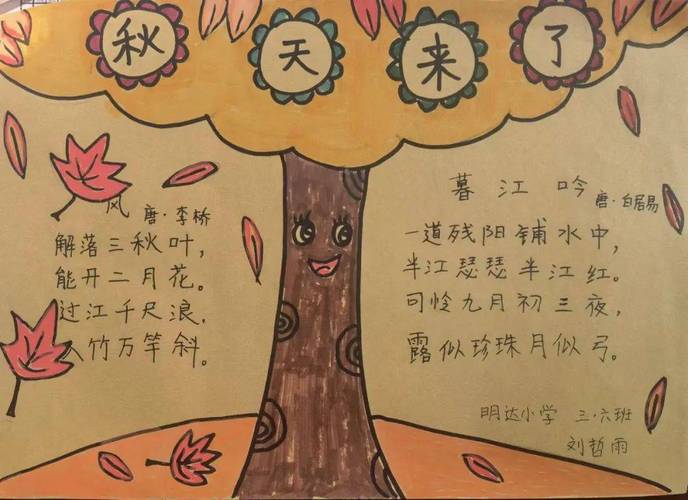 秋天来了
风 唐·李桥
解落三秋叶，
能开二月花。
过江千尺浪，
入竹万竿斜。
暮江吟 唐·白居易
一道残阳铺水中，
半江瑟瑟半江红。
可怜九月初三夜，
露似珍珠月似弓。
明达小学 三·六班
刘哲雨